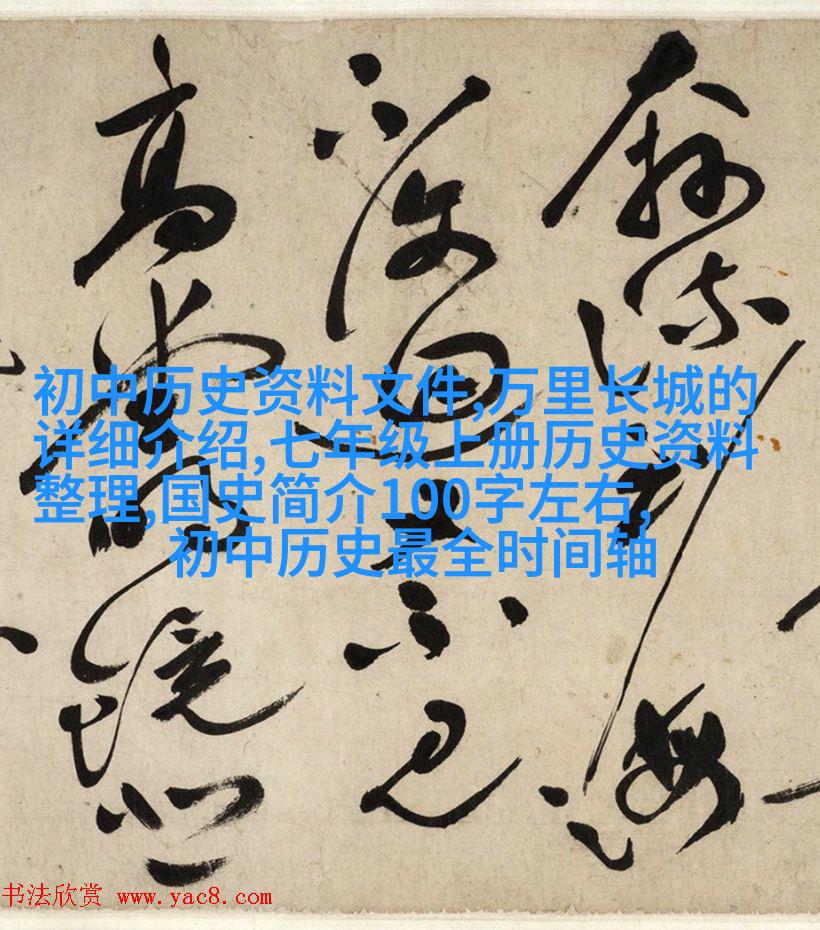 奔流到海
不復回君不見
高堂明鏡悲
初中历史资料文件,万里长城的
详细介绍,七年级上册历史资料
整理,国史简介100字左右,
初中历史最全时间轴
书法欣赏 www.yac8.com